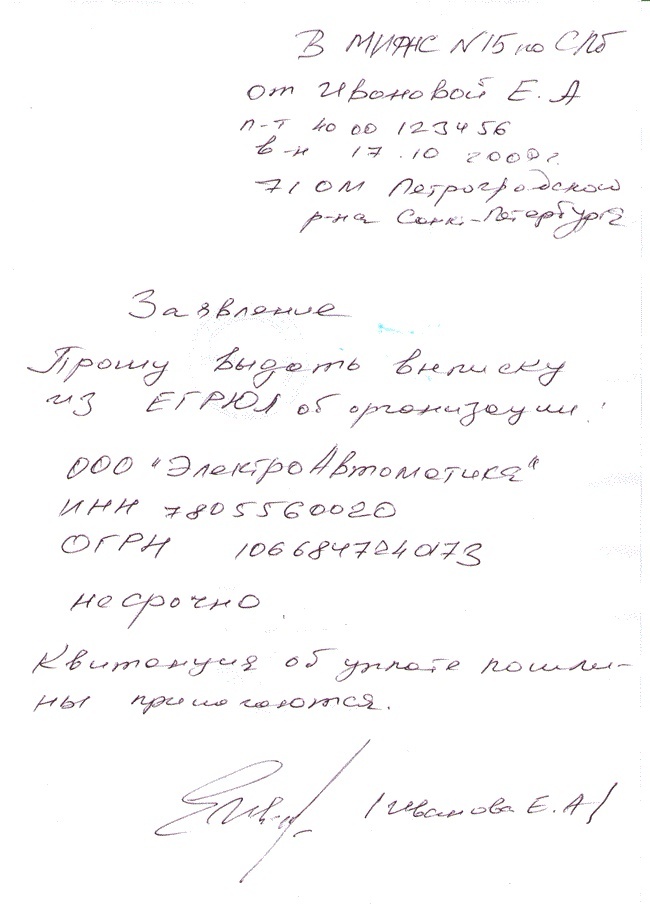 В МИФНС N15 по СПб
от Ивановой Е.А
п-т 40 00 123456
в-н 17.10 2000г.
71 ОМ Петроградского
р-на Санк.-Петербурга
Заявление
Прошу выдать выписку
из ЕГРЮЛ об организации:
ООО "ЭлектроАвтоматика"
ИНН 7805560020
ОГРН
несрочно
Квитанция об уплате пошли-
ны прилагаются.
/Иванова Е.А/